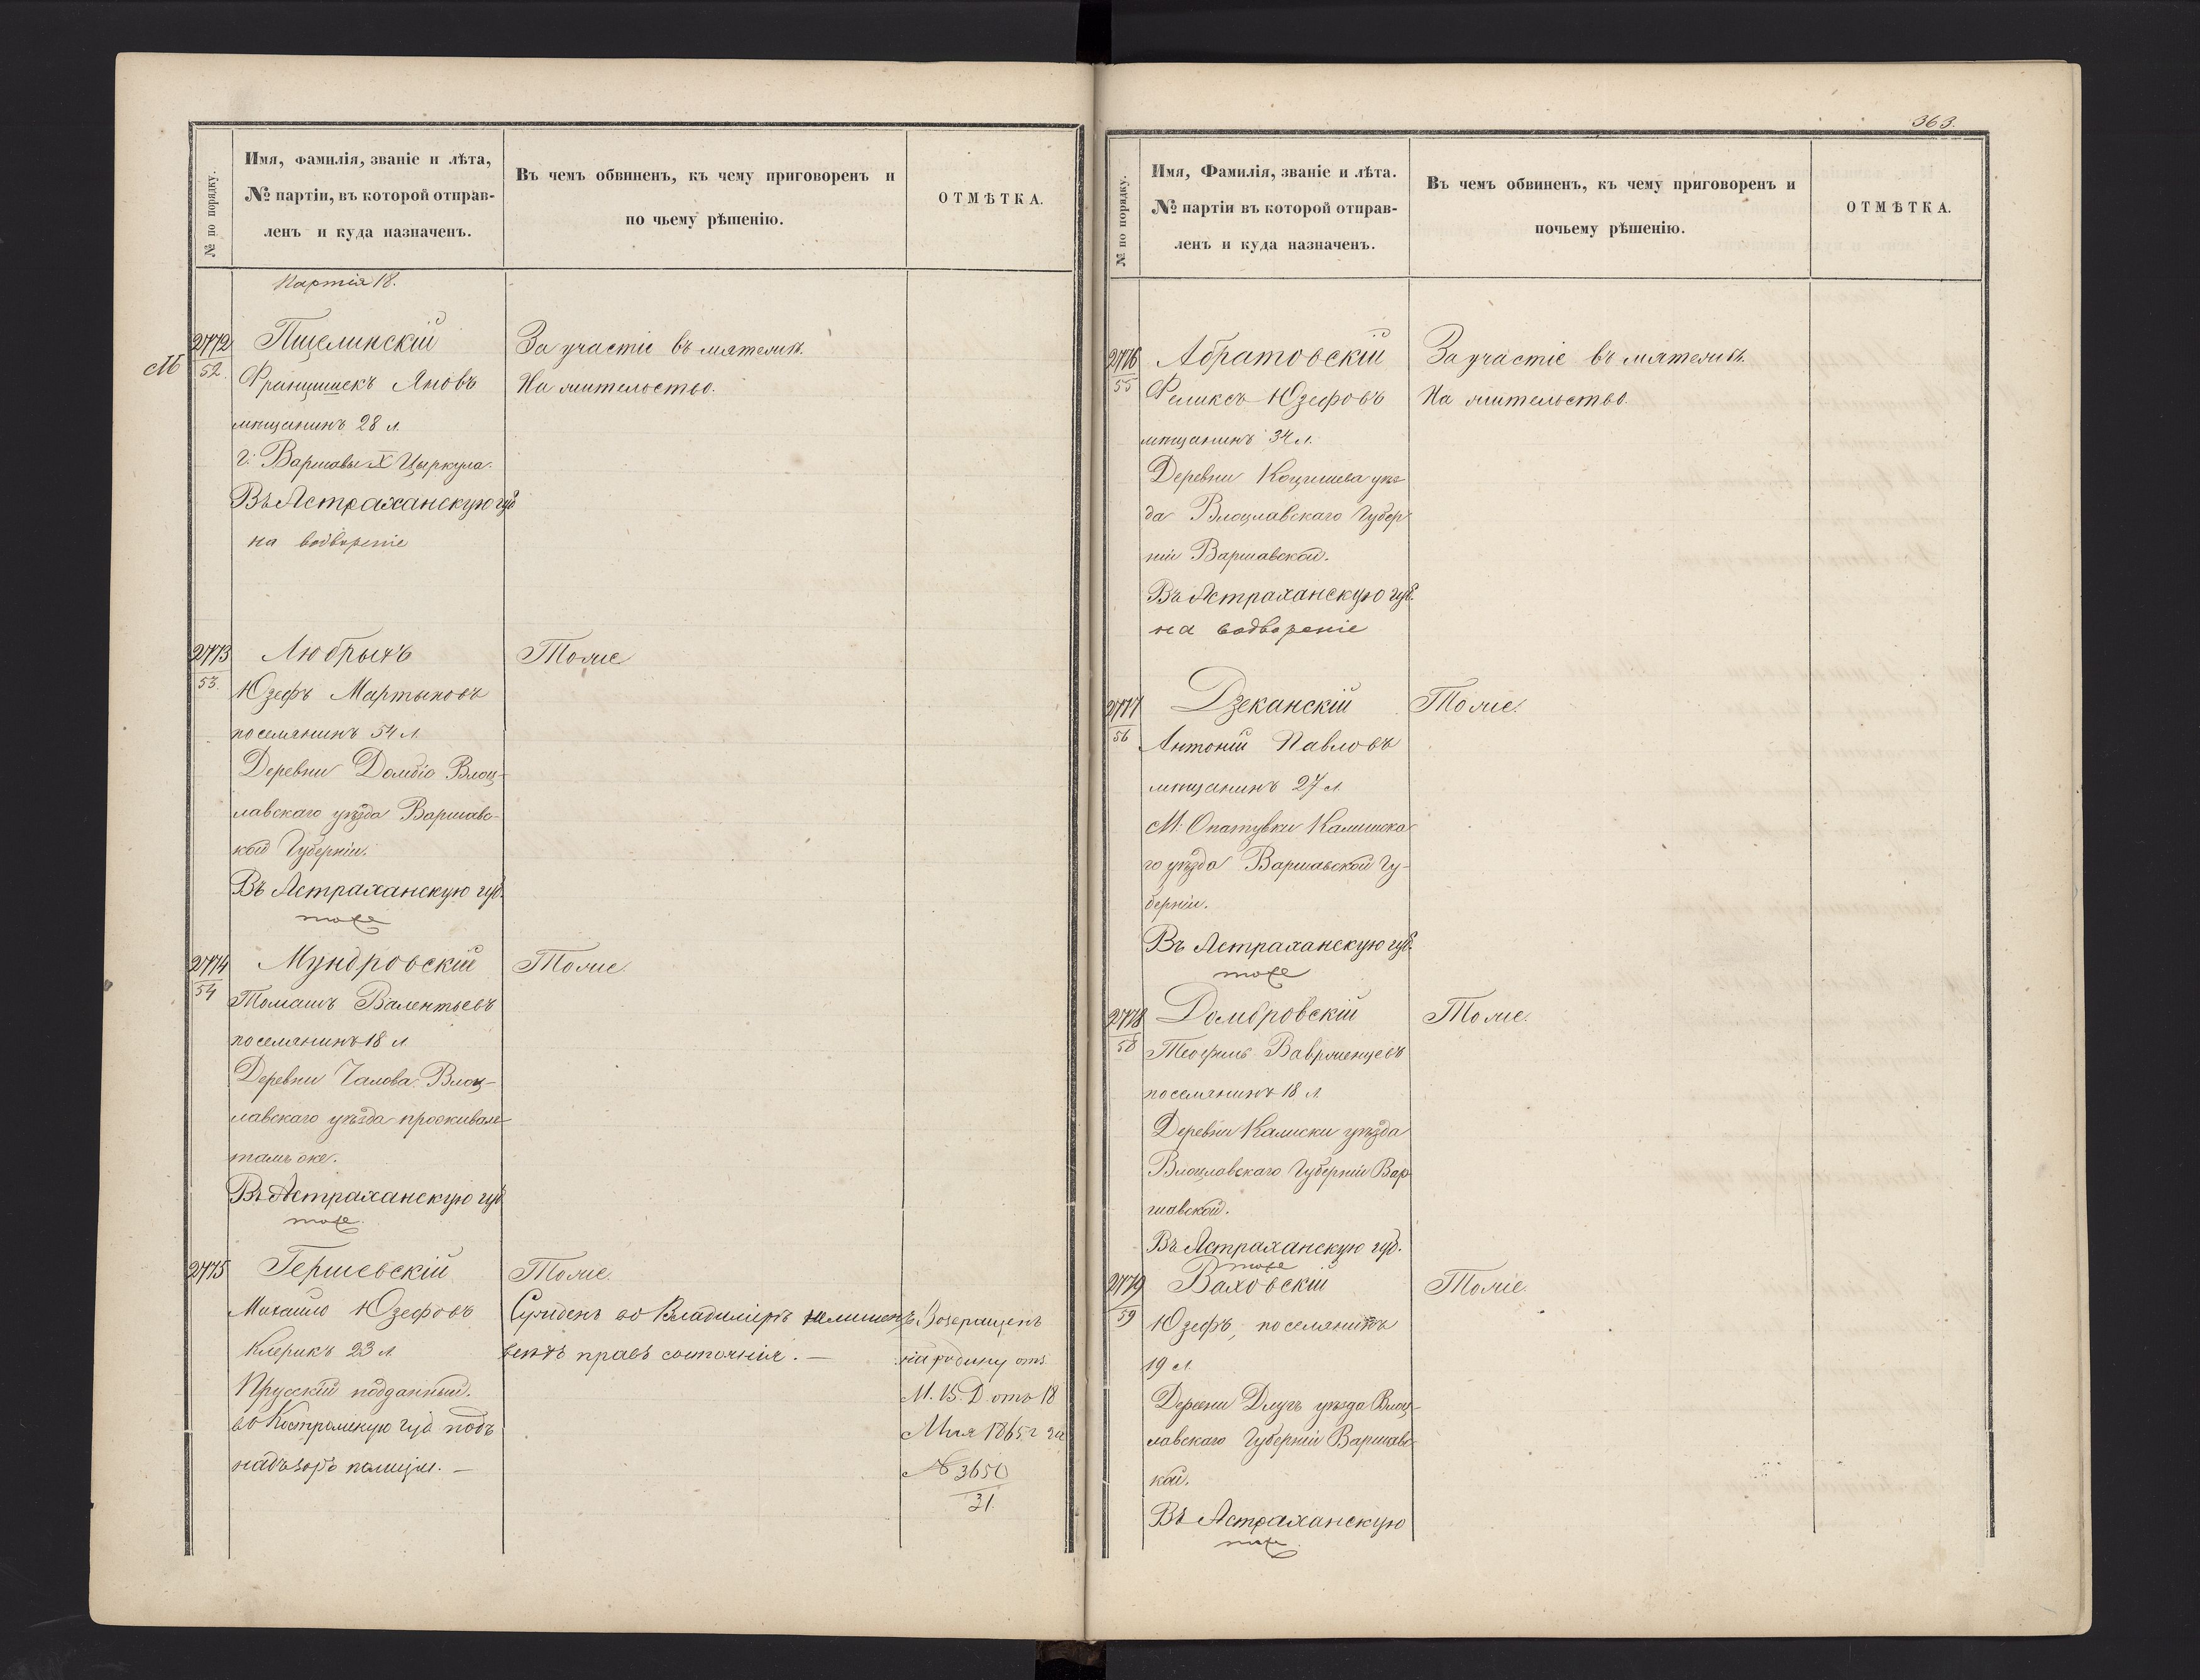 № по порядку.
Имя, фамилія, званіе и лѣта,
№ партіи, въ которой отправ-
ленъ и куда назначенъ.
Въ чемъ обвиненъ, къ чему приговоренъ и
по чьему рѣшенію.
ОТМѢТКА.
Партія 18.
М
2772
52.
Пщелинскій
Францишекъ Яновъ
мѣщанинъ 28 л.
г. Варшавы X Цыркула.
Въ Астраханскую губ
на водвореніе
За участіе въ мятежѣ.
На жительство.
2773
53.
Любрыхъ
Юзефъ Мартыновъ
поселянинъ 54 л.
Деревни Домбіо Влоц-
лавскаго уѣзда Варшавс-
кой Губерніи.
Въ Астраханскую губ.
тоже
Тоже
2774
54
Мундровскій
Томашъ Валентьевъ
поселянинъ 18 л
Деревни Чалова Влоц-
лавскаго уѣзда проживале
тамъ же.
Въ Астраханскую губ
тоже.
Тоже.
2775
Гершевскій
Михаило Юзефовъ
Клерикъ 23 л
Прусскій подданный.
во Костромскую губ подъ
надъзоръ полиціи. —
Тоже.
Сужденъ во Владиміръ нелишенъ
всехъ правъ состоянія. —
Возвращенъ
на родину отз
М. В. Д отъ 18
Мая 1865 г за
№ 3650
31.
363.
№ по порядку.
Имя, Фамилія, званіе и лѣта.
№ партіи въ которой отправ-
ленъ и куда назначенъ.
Въ чемъ обвиненъ, къ чему приговоренъ и
почьему рѣшенію.
ОТМѢТКА.
2776
55
Абратовскій
Феликсъ Юзефовъ
мѣщанинъ 34 л.
Деревни Коцишева уѣз
да Влоцлавскаго Губер
ніи Варшавской.
Въ Астраханскую губ.
на водвореніе
За участіе въ мятежѣ.
На жительство.
2777
56
Дзеканскій
Антоній Павловъ
мѣщанинъ 27 л
М. Опатувки Калишска
го уѣзда Варшавской Гу-
берніи.
Въ Астраханскую губ.
тоже
Тоже.
2778
58
Домбровскій
Теофиль Ваврженцевъ
поселянинъ 18 л
Деревни Калиски уѣзда
Влоцлавскаго Губерніи Вар
шавской.
Въ Астраханскую губ.
тоже
Тоже.
2779
59
Ваховскій
Юзефъ, поселянинъ
19 л.
Деревни Длугъ уѣзда Влоц-
лавскаго Губерніи Варшавс-
кой.
Въ Астраханскую
тоже.
Тоже.